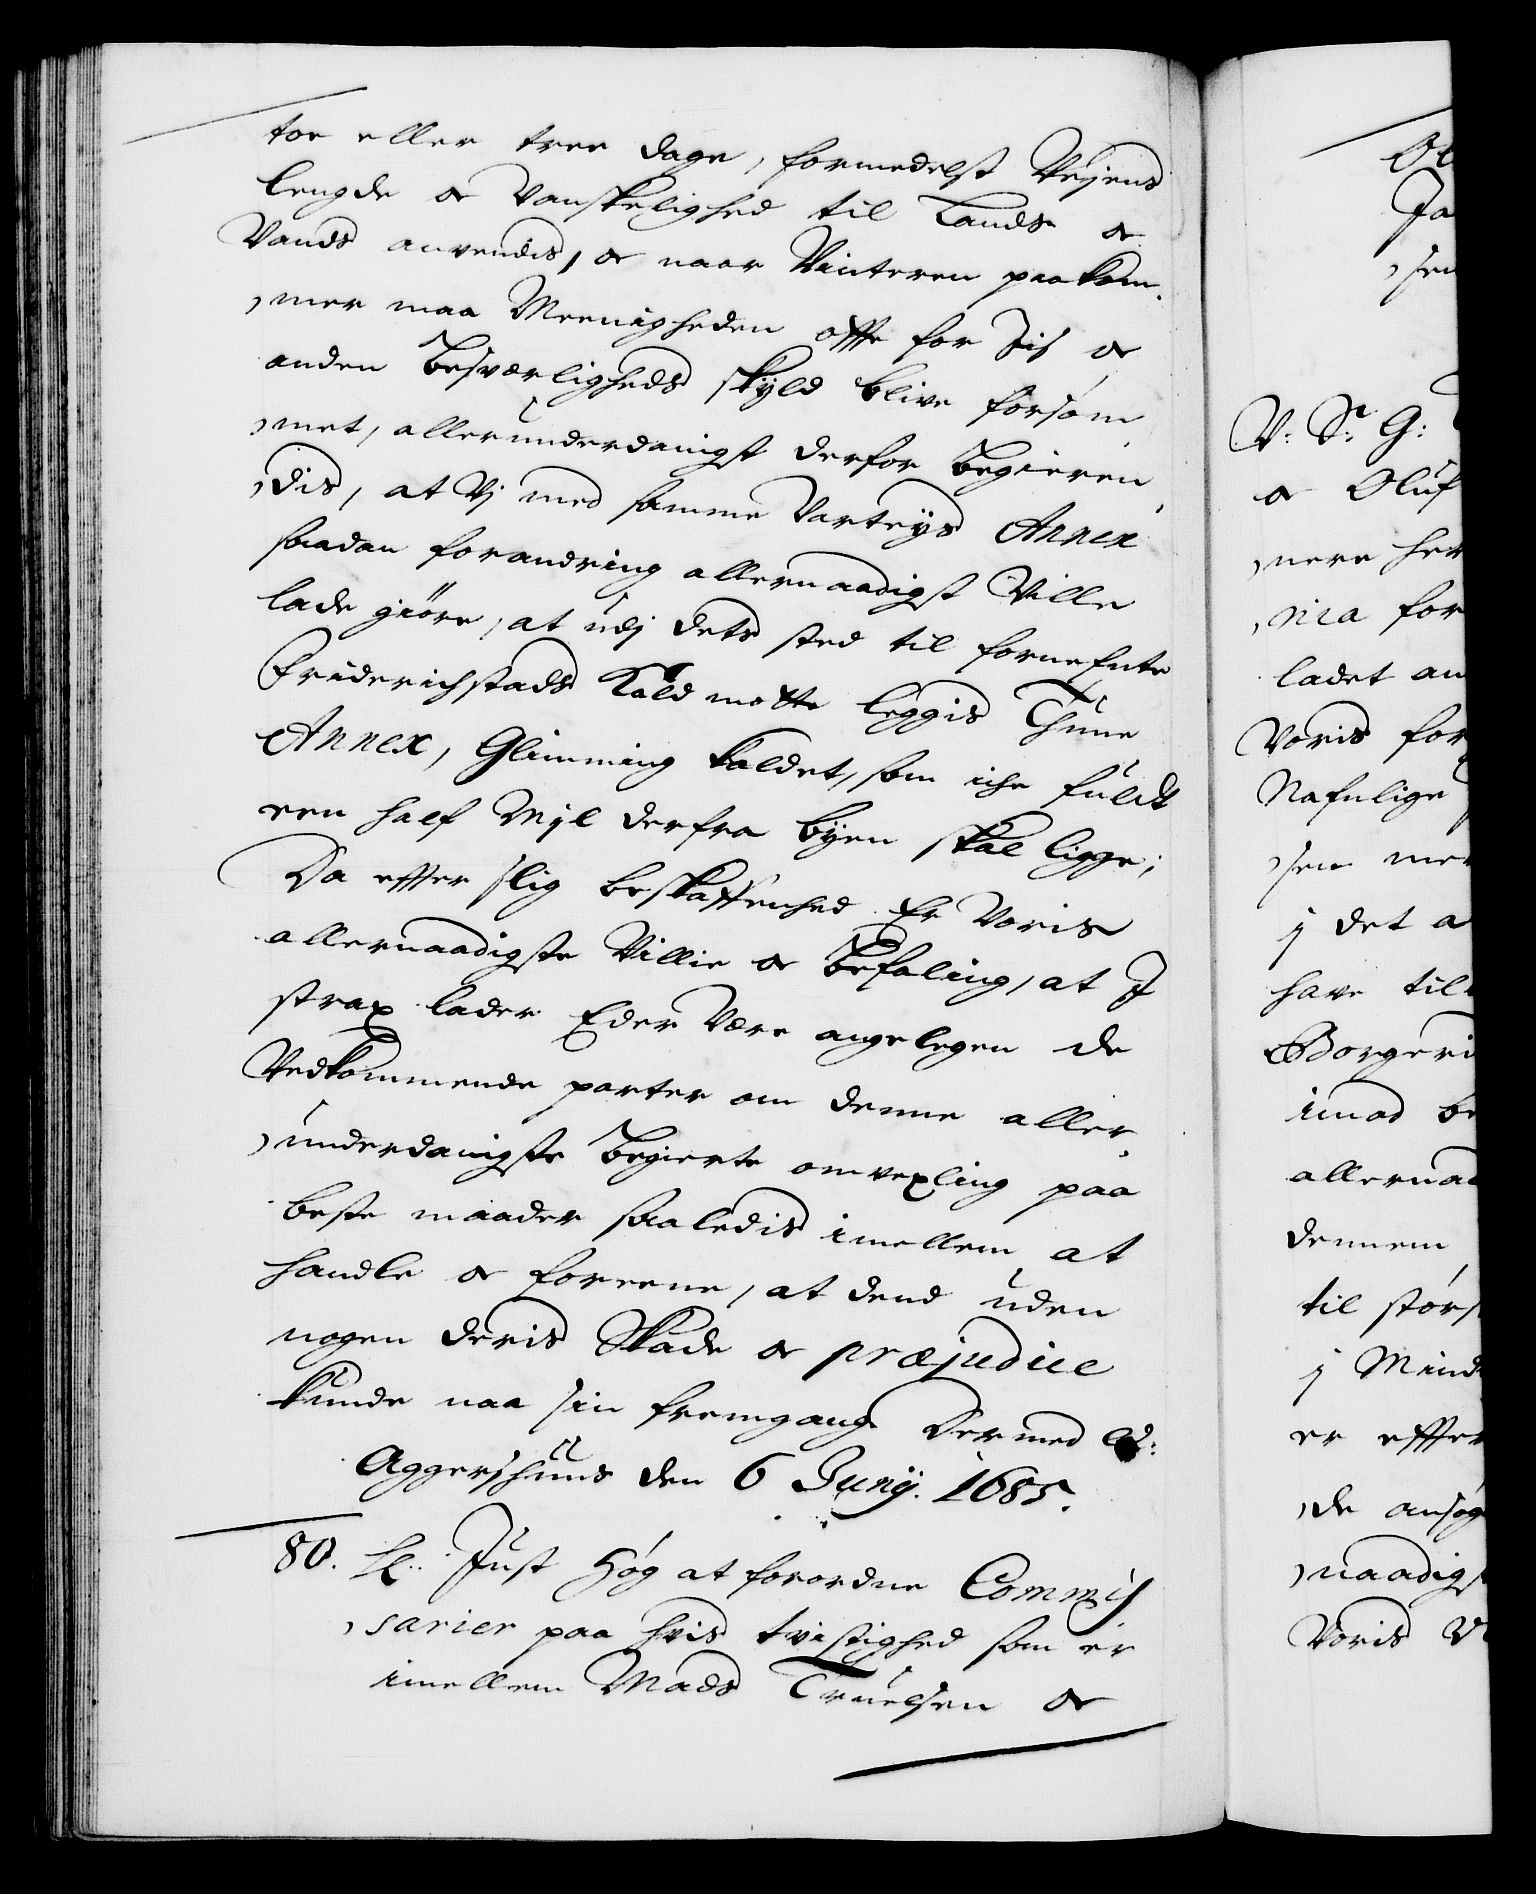 toe eller tree dage, formedelst Veÿens
lengde oc Vanskelighed til Lands oc
Vands anvendis, oc naar Vinteren paa kom,
,mer maa Meenigheden offte for Jis oc
anden Besværligheds skÿld blive forsøm
,met, allerunderdanigst derfor begieren,
,dis, at Vj med samme Varteÿs Annex
saadan forandring allernaadigst Ville
lade giöre, at udj dets sted til fornefnte
Friderichstads Kald motte leggis Thune
Annex, Glimming kaldet, som iche fuldt
een half Mjl derfra bÿen skal ligge;
Da effter slig beskaffenhed Er Voris
allernaadigste Villie oc Befaling, at I
strax lader Eder Være angelegen de
Vedkommende parter om denne aller,
,underdanigste begierte omvexling paa
beste maader saaledis imellem at
handle oc foreene, at dend uden
nogen deris Skade oc præjudice
kunde naa sin fremgang Dermed &:
Aggershuus den 6 Junÿ. 1685.
80. Just Høg at forordne Commis
,sarier paa hvis tvistighed som er
imellem Mads Truelsen oc
V: Sr: G:
oc Oluf
,nere her
,nia for
ladet an
Voris for
Nafnlige
,sen me
j det a
have til
Borgeri
imod be
allernaa
dennem
til størs
j Mind
er effter
,de ansøg
,naadigs
Voris V